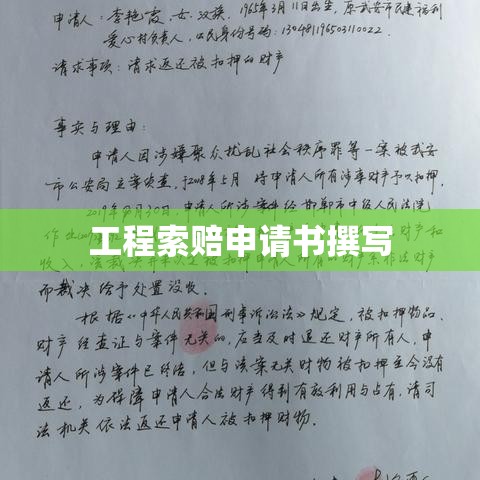 申请人：李艳霞，女，汉族，1965年3月11日出生，原武安市民建福利
爱心村负责人，公民身份号码：130481196503110022.
请求事项：请求返还被扣押的财产
事实与理由：
申请人因涉嫌聚众扰乱社会秩序罪等一案被武安
市公安局立案侦查，于2018年5月 将申请人所有涉案财产予以扣押，
2019年 月30日，申请人所涉案件经邯郸市中级人民法院
工程索赔申请书撰写
而裁决给予处置没收。
根据《中华人民共和国刑事诉讼法》规定，被扣押物品、
财产经查证与案件无关的，应当及时退还财产所有人，申
请人所涉案件已终结，但与该案无关财物被扣押至今没有
返还，为保障申请人合法财产得到有效利用与占有，请司
法机关依法返还申请人被扣押财物。